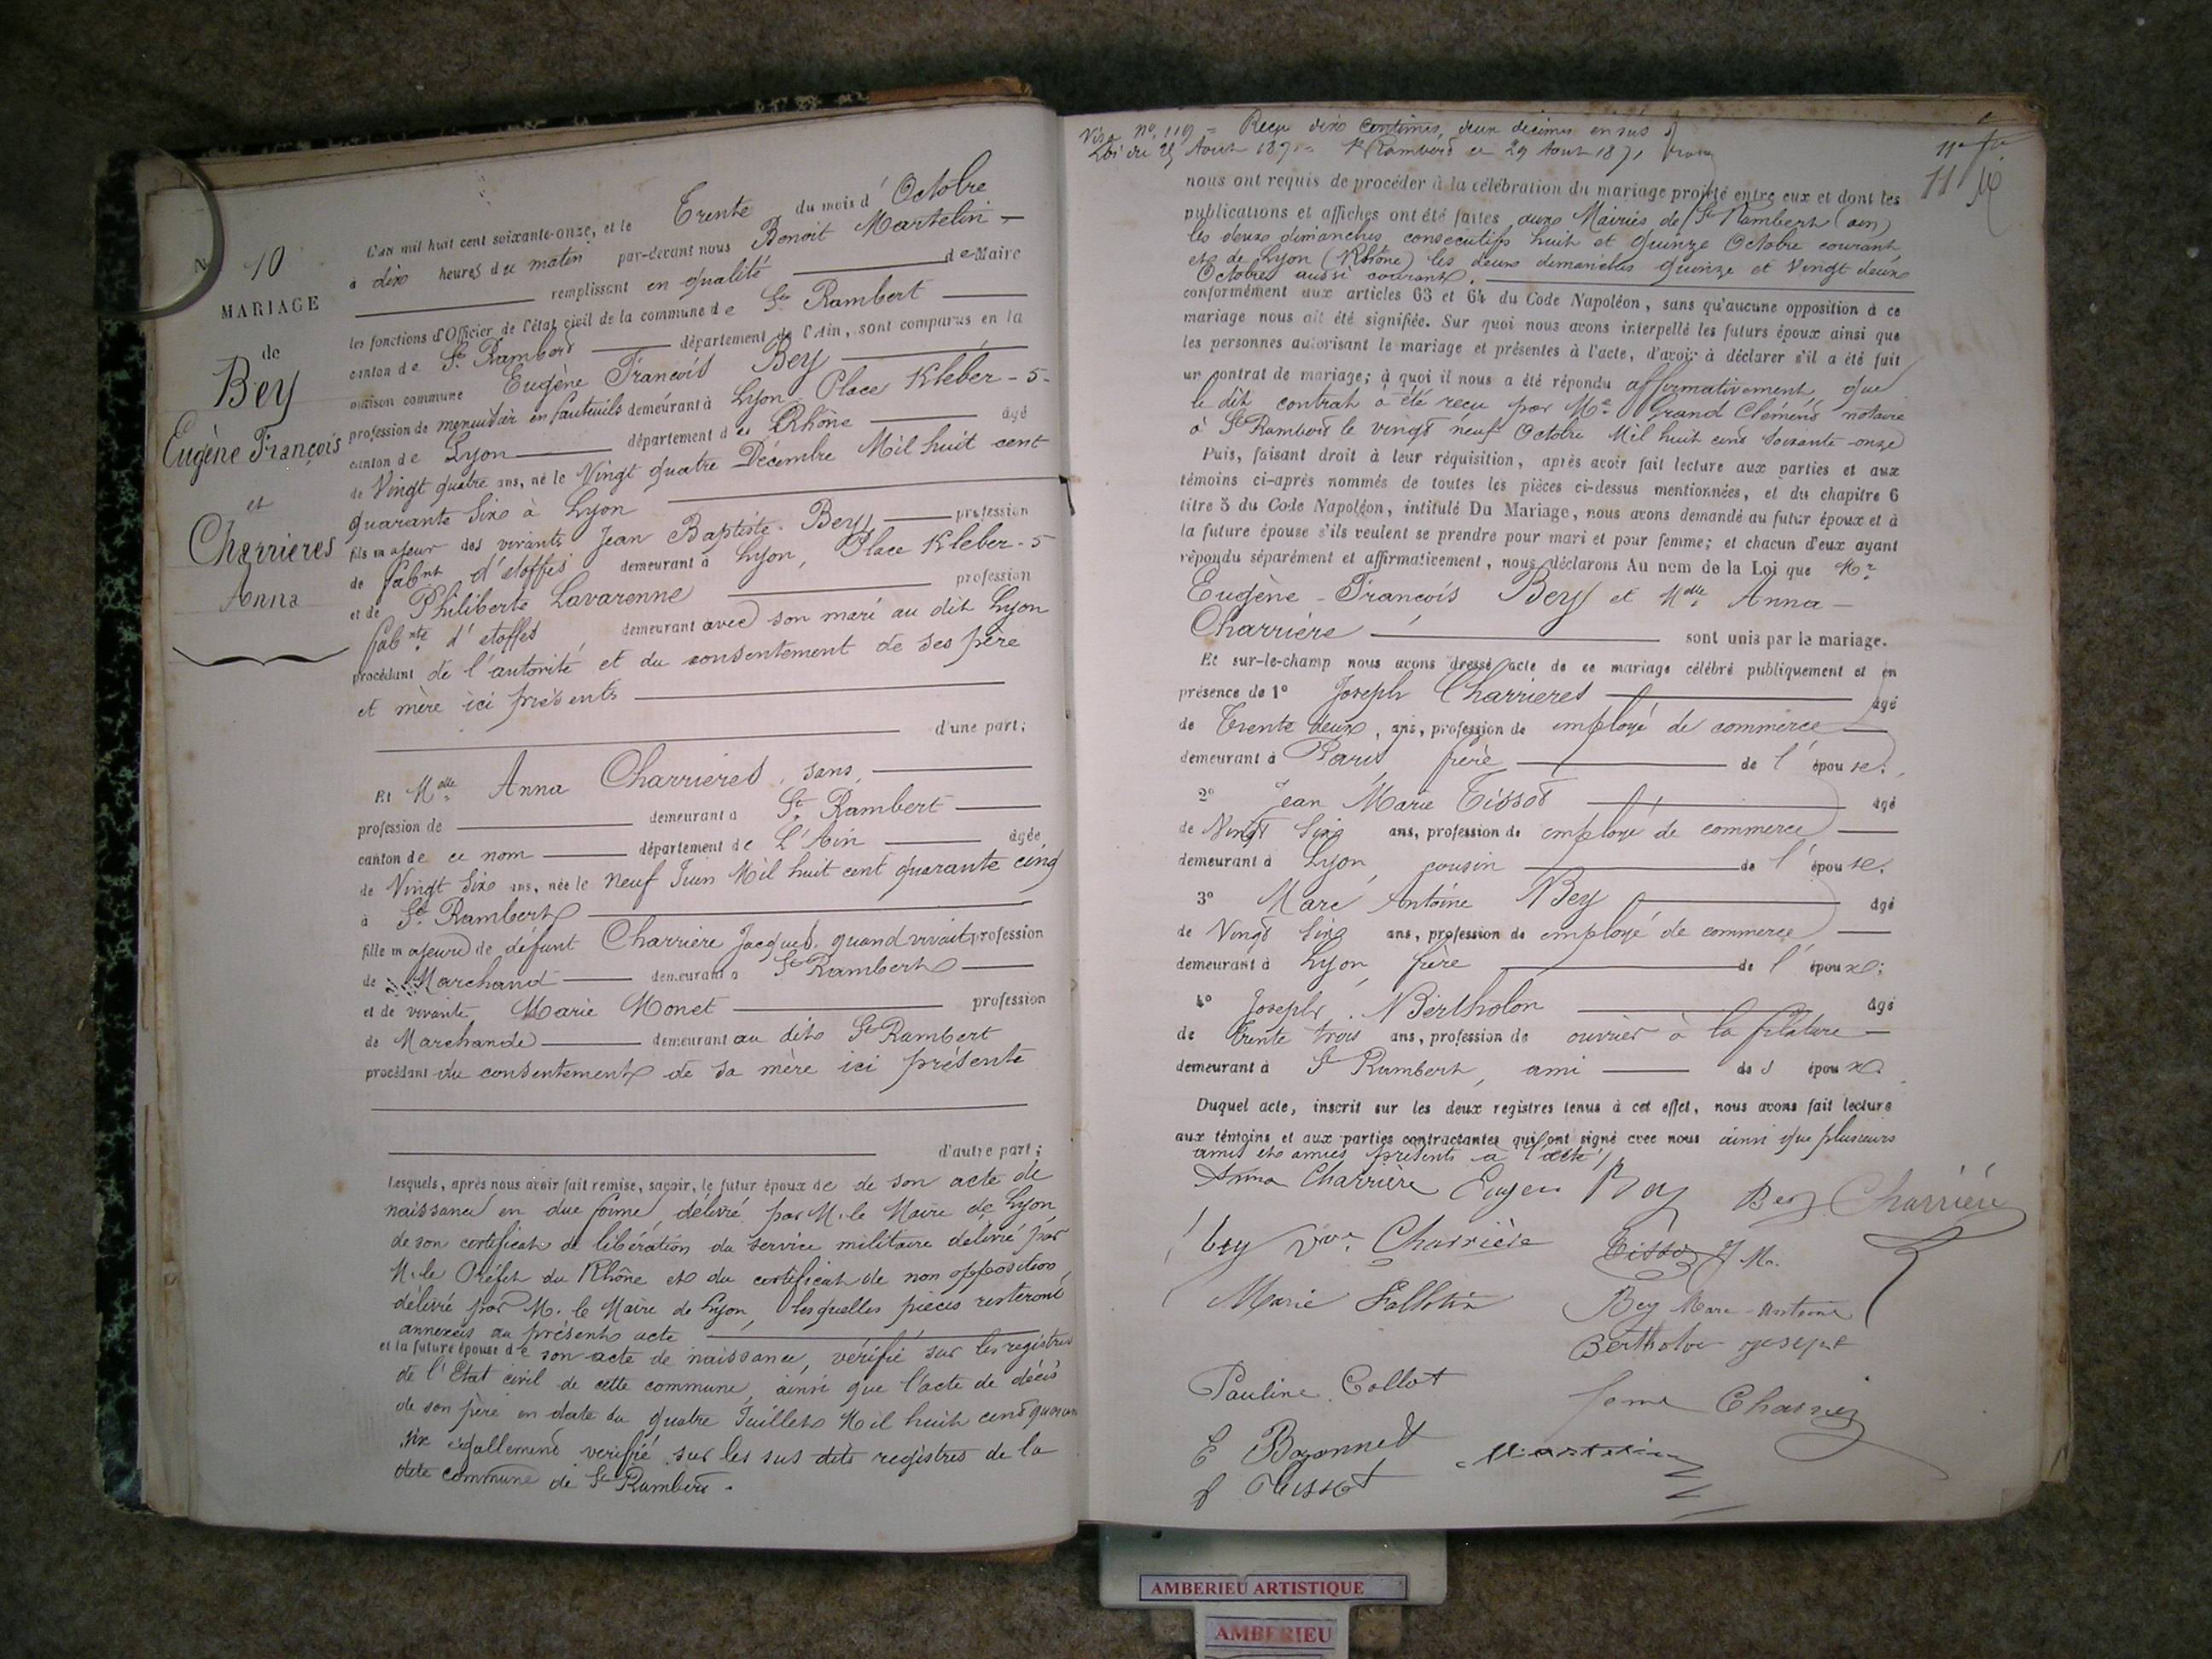 N 10
MARIAGE
de
Bey
Eugène François
et
Charrieres
Anna
L'an mil huit cent soixante-onze, et le Trente du mois d'Octobre
à dix heures du matin par-devant nous Benoit Martelin
remplissant en qualité de Maire
les fonctions d'Officier de l'état civil de la commune de St Rambert
canton de St Rambert département de l'Ain, sont comparus en la
maison commune Eugène François Bey
profession de menuisier en fauteuils demeurant à Lyon Place Kleber - 5 -
canton de Lyon département du Rhône âgé
de Vingt quatre ans, né le Vingt quatre Décembre Mil huit cent
quarante Six à Lyon
fils majeur des vivants Jean Baptiste Bey profession
de fabnt d'etoffes demeurant à Lyon, Place Kleber - 5
et de Philiberte Lavarenne profession
fabnte d'etoffes demeurant avec son mari au dit Lyon
procédant de l'autorité et du consentement de ses père
et mère ici présents
d'une part;
Et Melle Anna Charrieres, sans
profession de demeurant à St Rambert
canton de ce nom département de L'Ain âgée
de Vingt Six ans, née le neuf Juin Mil huit cent quarante cinq
à St Rambert
fille majeure de défunt Charrière Jacques, quand vivait profession
de Marchand demeurant à St Rambert
et de vivante Marie Monet profession
de Marchande demeurant au dit St Rambert
procédant du consentement de sa mère ici présente
d'autre part;
Lesquels, après nous avoir fait remise, savoir, le futur époux de de son acte de
naissance en due forme, délivré par M. le Maire de Lyon
de son certificat de libération du service militaire délivré par
M. le Préfet du Rhône et du certificat de non opposition,
délivré par M. le Maire de Lyon, lesquelles pièces resteront
annexées au présent acte
et la future épouse de son acte de naissance, vérifié sur les registres
de l'Etat civil de cette commune, ainsi que l'acte de décès
de son père en date du quatre Juillet Mil huit cent
six égallement verifié sur les sus dits registres de la
dite commune de St Rambert.
Visa No 119 = Reçu dix centimes, deux décimes en sus
Loi du 23 Aout 1871 = St Rambert le 29 Aout 1871
11
nous ont requis de procéder à la célébration du mariage projeté entre eux et dont les
publications et affiches ont été faites aux Mairies de St Rambert (ain)
les deux dimanches consecutifs huit et quinze Octobre courant
et de Lyon (Rhône) les deux dimanches quinze et Vingt deux
Octobre aussi courant.
conformément aux articles 63 et 64 du Code Napoléon, sans qu'aucune opposition à ce
mariage nous ait été signifiée. Sur quoi nous avons interpellé les futurs époux ainsi que
les personnes autorisant le mariage et présentes à l'acte, d'avoir à déclarer s'il a été fait
un contrat de mariage; à quoi il nous a été répondu affirmativement, que
le dit contrat a été reçu par Me Grand Clément notaire
à St Rambert le vingt neuf Octobre Mil huit cent Soixante onze
Puis, faisant droit à leur réquisition, après avoir fait lecture aux parties et aux
témoins ci-après nommés de toutes les pièces ci-dessus mentionnées, et du chapitre 6
titre 5 du Code Napoléon, intitulé Du Mariage, nous avons demandé au futur époux et à
la future épouse s'ils veulent se prendre pour mari et pour femme; et chacun d'eux ayant
répondu séparément et affirmativement, nous déclarons Au nom de la Loi que Mr
Eugène - François Bey et Melle Anna -
Charrière sont unis par le mariage.
Et sur-le-champ nous avons dressé acte de ce mariage célébré publiquement et en
présence de 1º Joseph Charrieres âgé
de Trente deux, ans, profession de employé de commerce
demeurant à Paris frère de l'épouse.
2º Jean Marie Tissot âgé
de Vingt Six ans, profession de employé de commerce
demeurant à Lyon, cousin de l'épouse.
3º Marc Antoine Bey âgé
de Vingt Six ans, profession de employé de commerce
demeurant à Lyon, frère de l'époux;
4º Joseph Bertholon âgé
de trente trois ans, profession de ouvrier à la filature
demeurant à St Rambert, ami de l'époux.
Duquel acte, inscrit sur les deux registres tenus à cet effet, nous avons fait lecture
aux témoins et aux parties contractantes qui ont signé avec nous ainsi que plusieurs
amis et amies présents à l'acte
Anna Charrière Eugene Bey Bey Charriére
bey Vve Charrière Tissot J. M.
Marie Bey Marc-Antoine
Bertholon josept
Pauline Collot
E Bozonnet Martelin
Tissot
AMBERIEU ARTISTIQUE
AMBERIEU